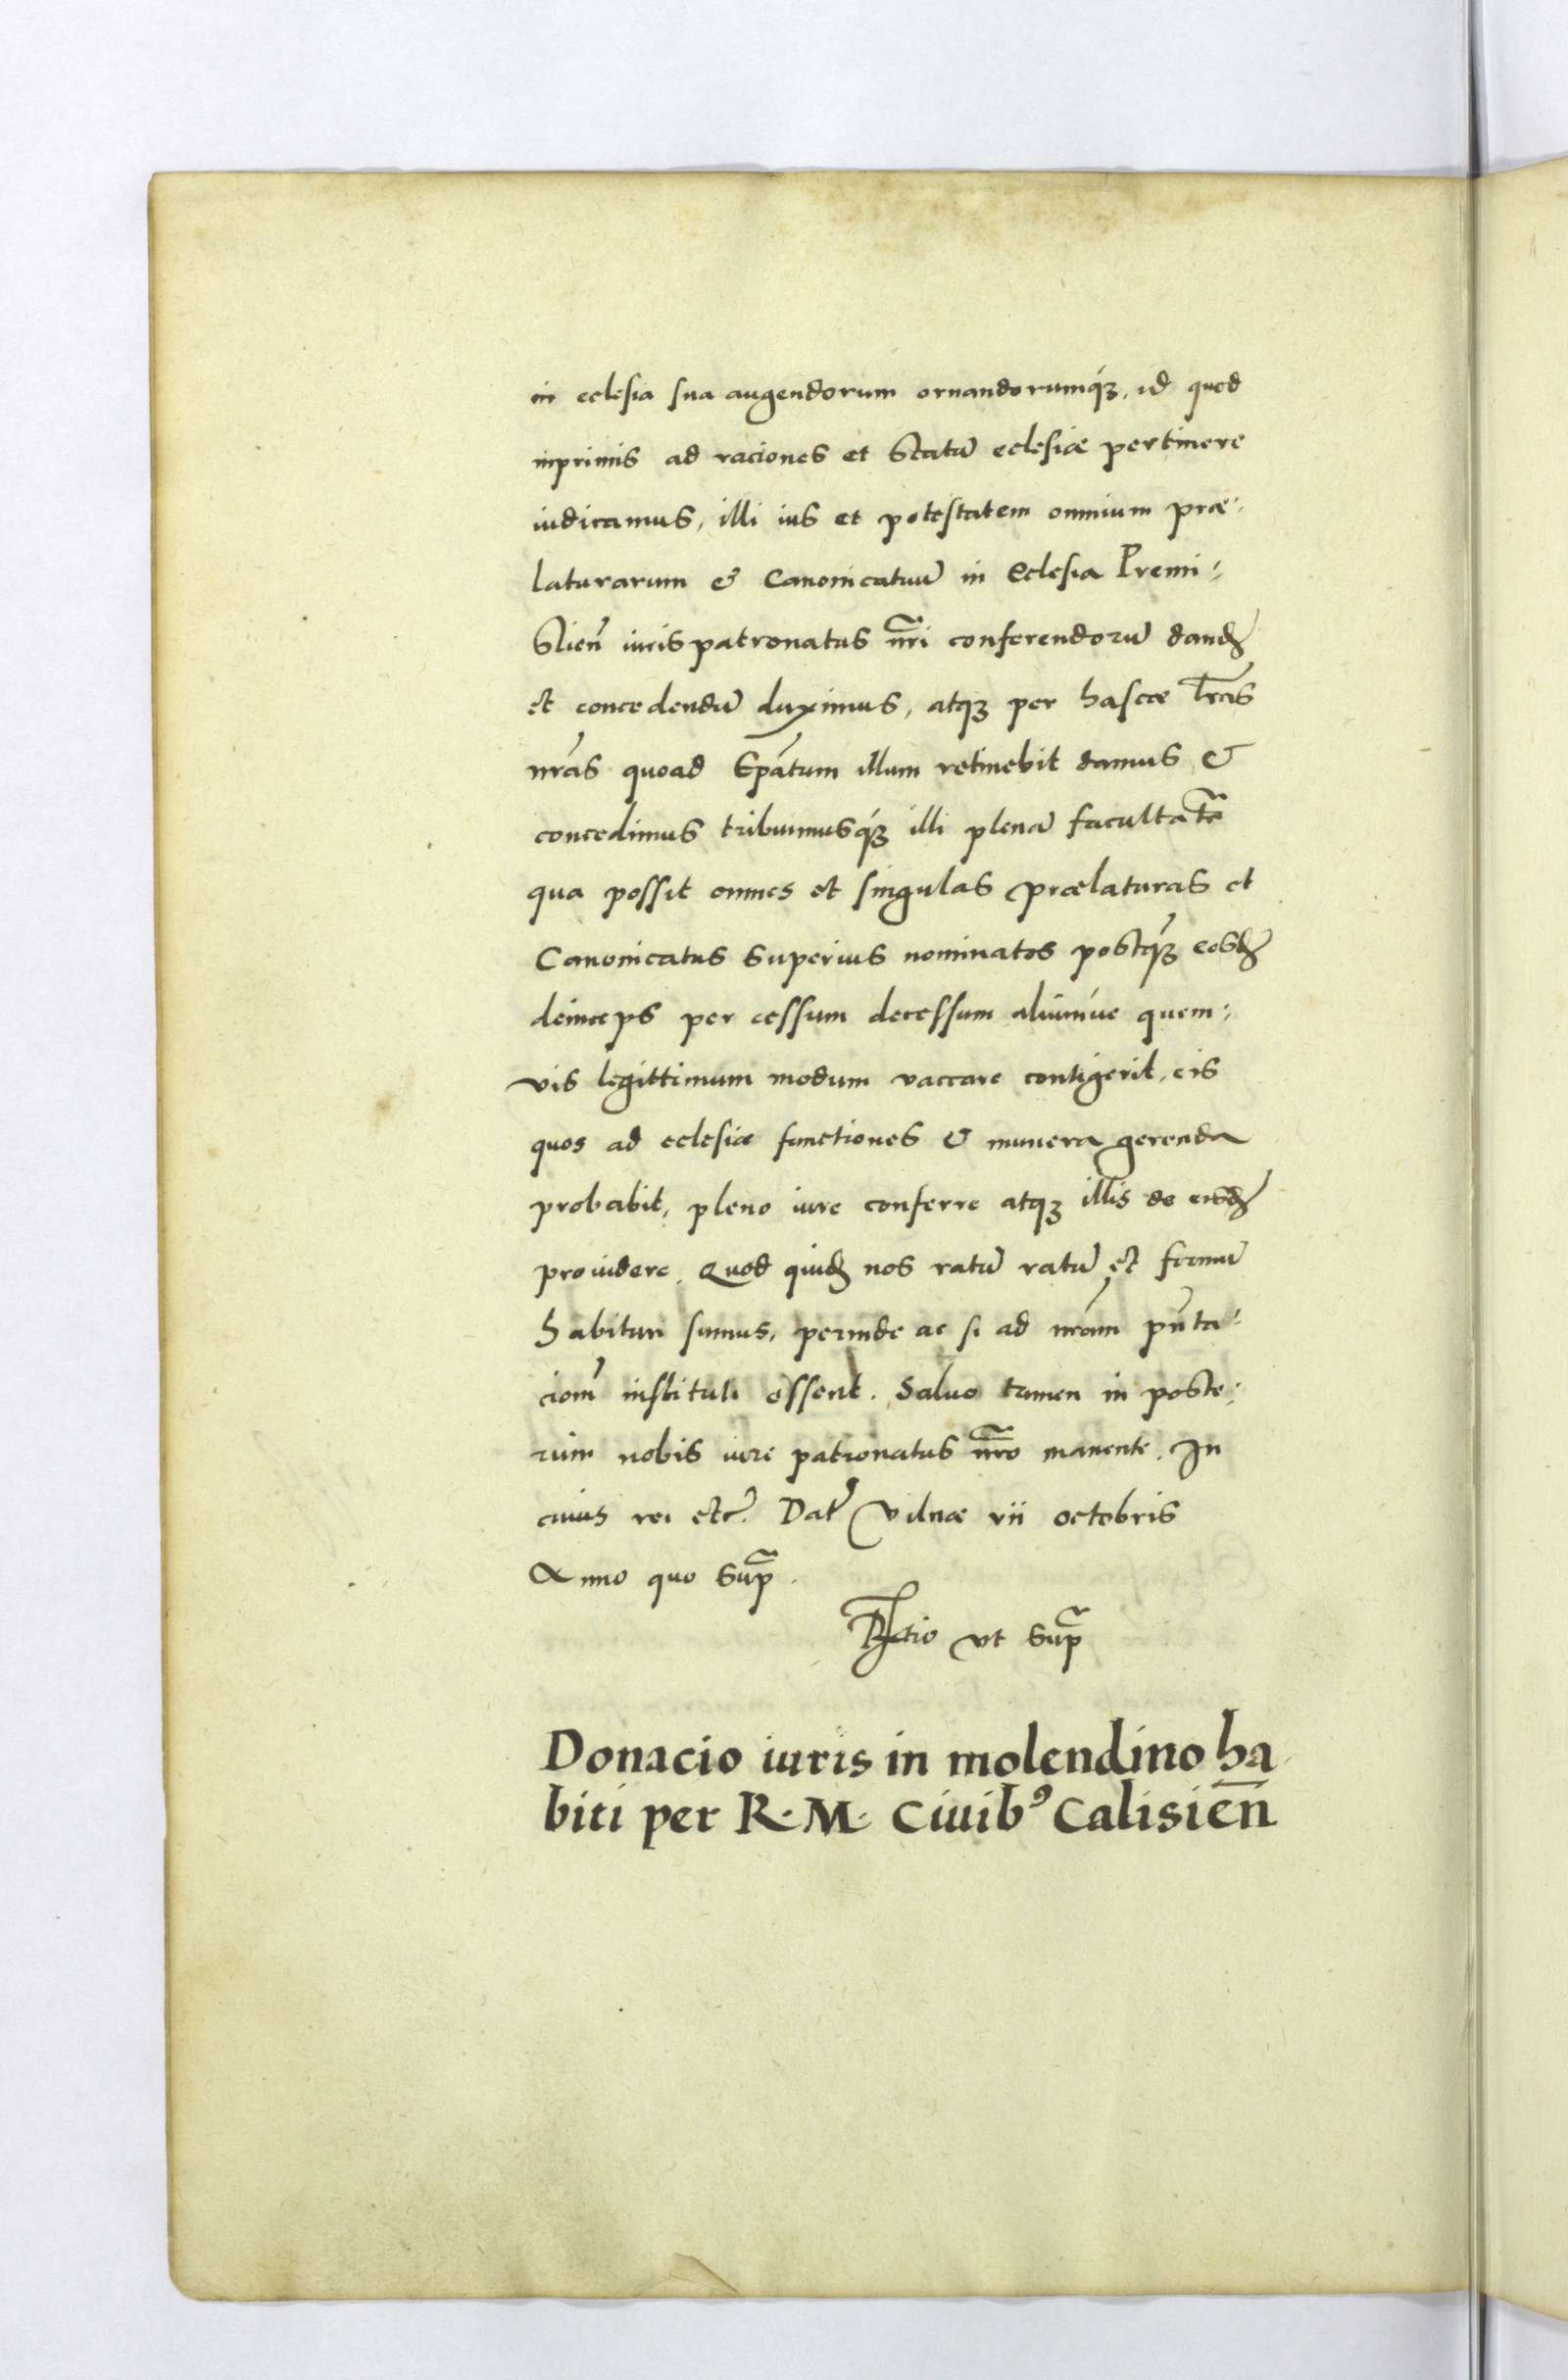 in eclesia sua augendorum ornandorumq́ꝫ, id quod
inprimis ad raciones et Statū eclesiæ pertinere
iudicamus, illi ius et potestatem omnium præ-
laturarum & Canonicatuū in Eclesia Premi-
slien̄ iuris patronatus nr̄i conferendorū dandꝫ
et concedendū duximus, atqꝫ per hasce lr̄as
nr̄as quoad Ep̄atum illum retinebit damus &
concedimus tribuimusq́ꝫ illi plenā facultatē
qua possit omnes et singulas prælaturas et
Canonicatus superius nominatos postqꝫ eosdꝫ
deinceps per cessum decessum aliumúe quem-
vis legittimum modum vaccare contigerit, eis
quos ad eclesiæ functiones & munera gerenda
probabit, pleno iure conferre atqꝫ illis de eisdꝫ
prouidere. Quod quidꝫ nos ratū ratū et firmū
habituri sumus, perinde ac si ad nr̄am pn̄ta-
ciom̄ instituti essent. Saluo tamen in poste-
rum nobis iure patronatus nr̄o manente. In
cuius rei etc̄. Dat̄ Vilnæ vii octobris
Anno quo sup̄.
Rl̄atio vt sup̄
Donacio iuris in molendino ha
biti per R. M. Ciuibꝰ Calisien̄